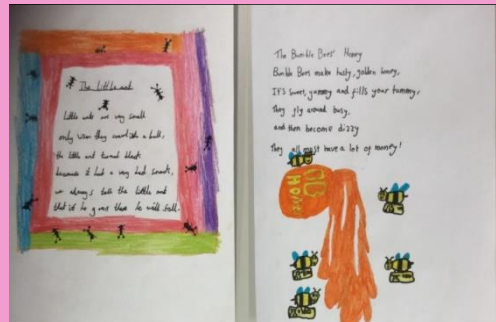 The Little ant
Little ants are very small
only when they crawl in a ball,
the little ant turned black
because it had a very bad
we always tell the little ant
that if he goes there he will fall.
The Bumble Bees' Honey
Bumble Bees make tasty, golden honey,
It's sweet, yummy and fills your tummy,
They fly around busy,
and then become dizzy
They all must have a lot of money!